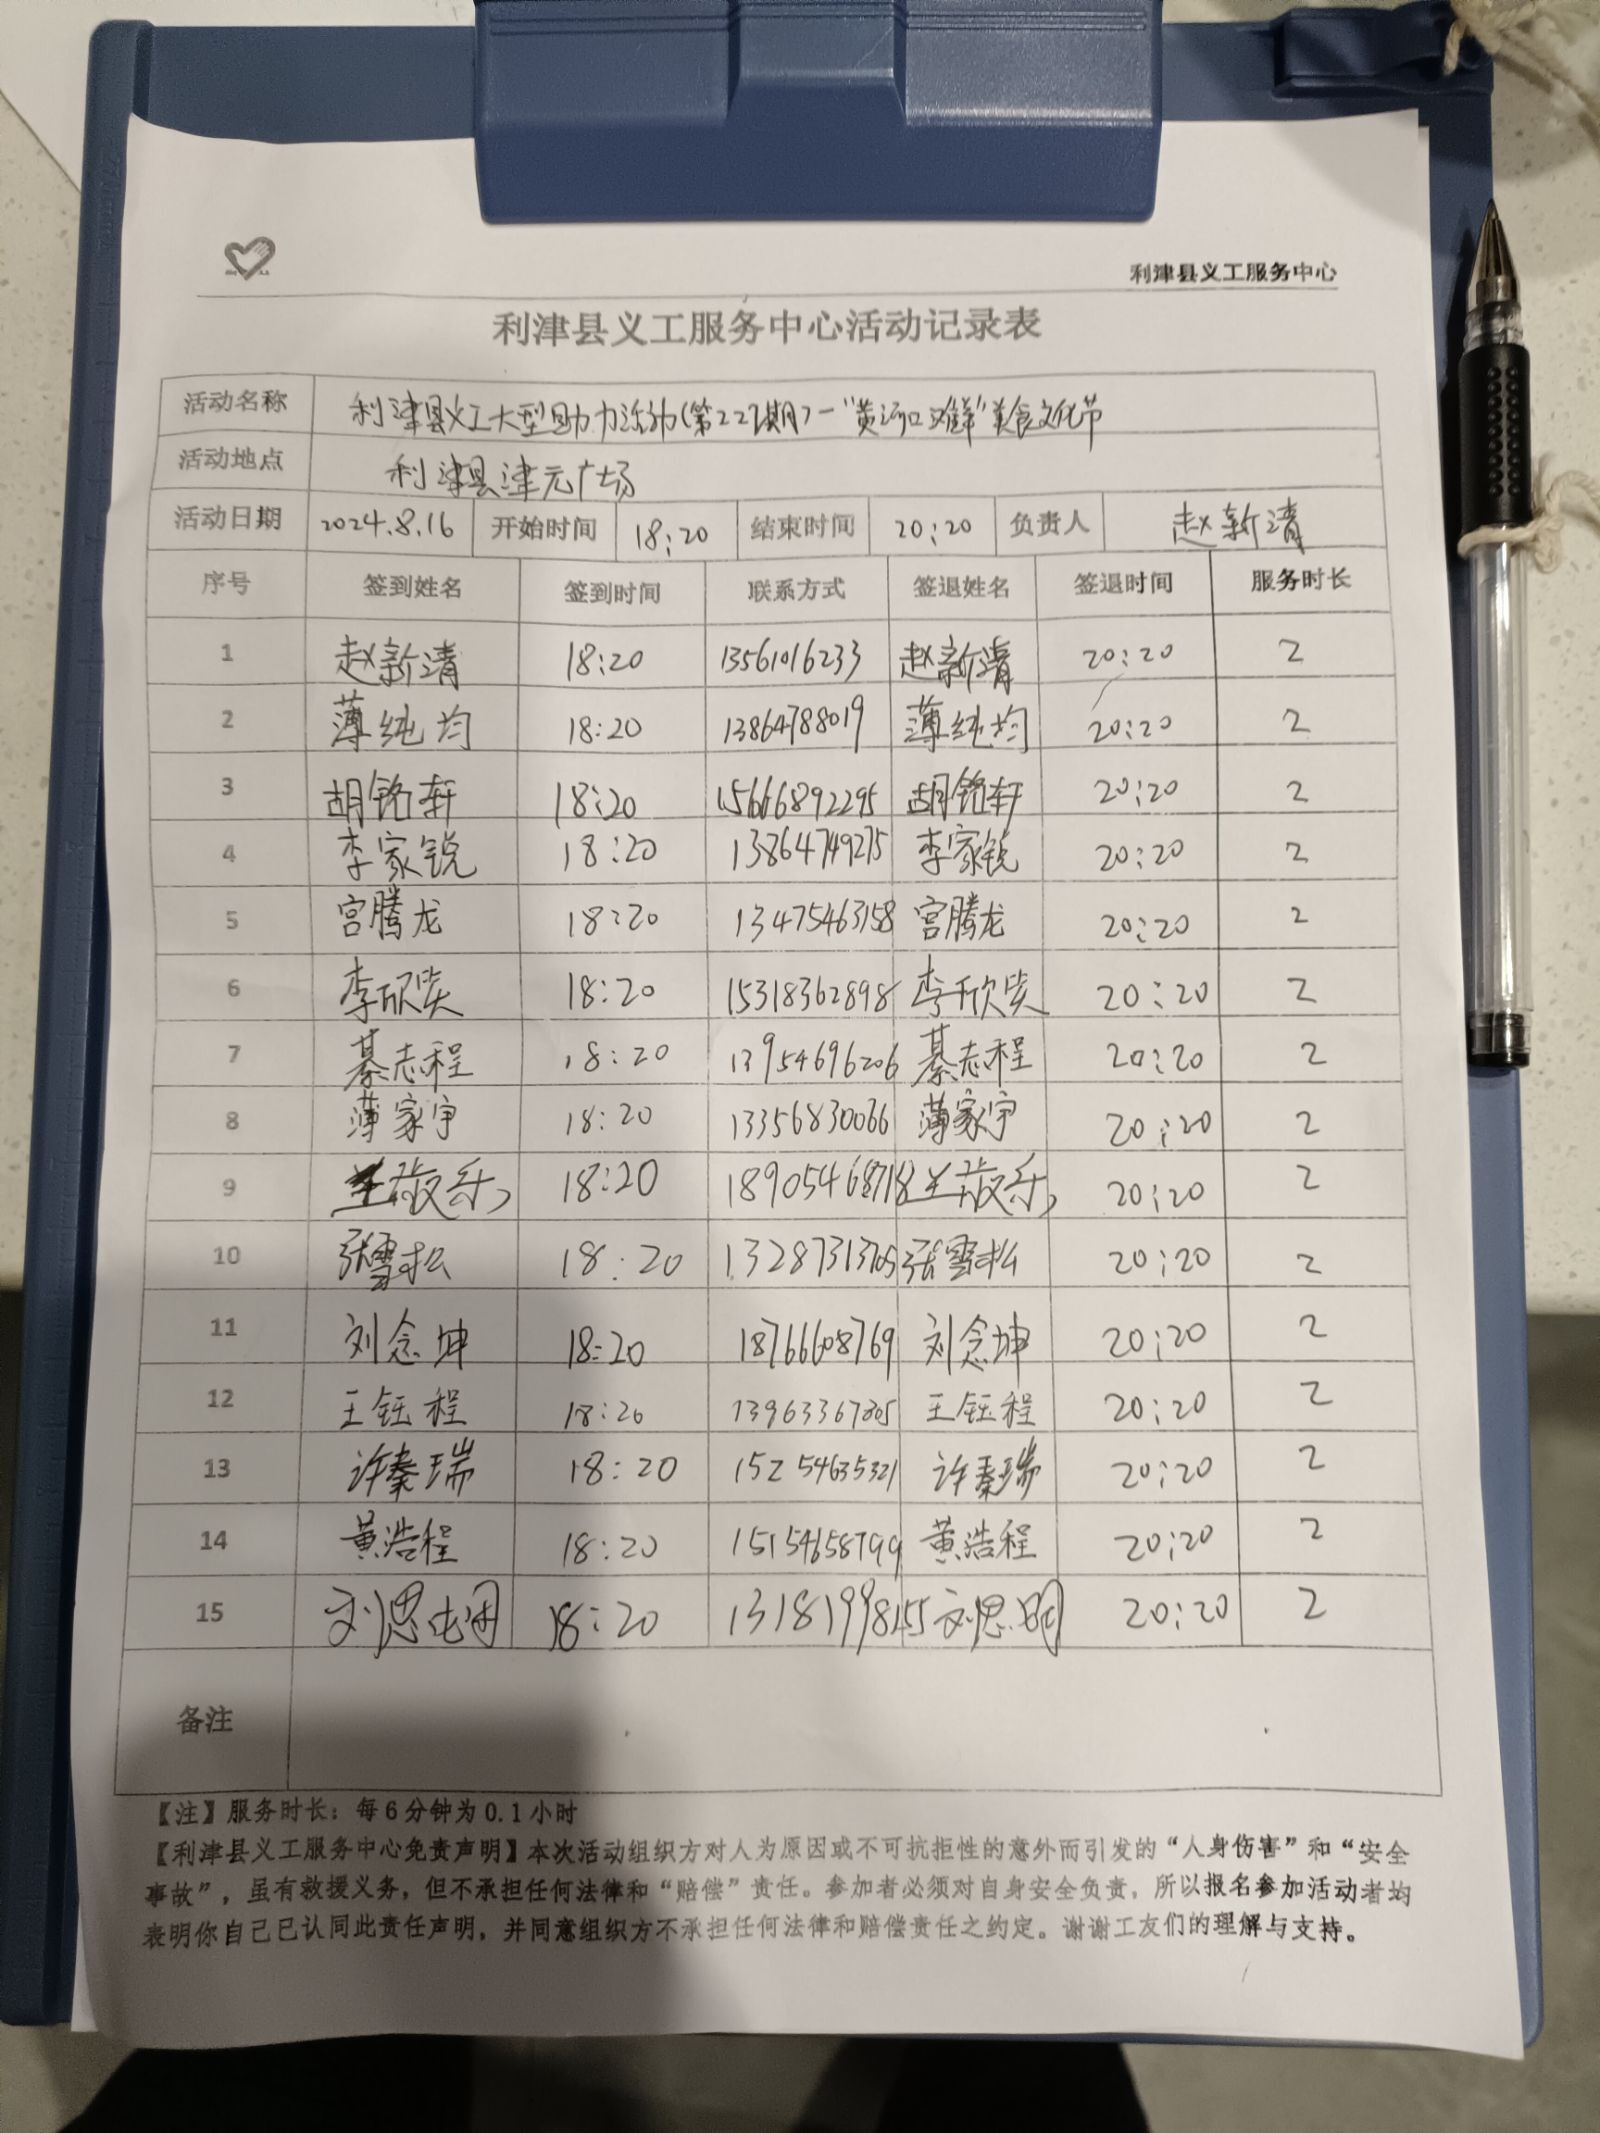 利津县义工服务中心
利津县义工服务中心活动记录表
活动名称 利津县义工大型助力活动(第222期)-"黄河口鲜"美食文化节
活动地点 利津县津元广场
活动日期 2024.8.16 开始时间 18:20 结束时间 20:20 负责人 赵新清
序号 签到姓名 签到时间 联系方式 签退姓名 签退时间 服务时长
1 赵新清 18:20 13561016233 赵新清 20:20 2
2 薄纯均 18:20 13864788019 薄纯均 20:20 2
3 胡铭轩 18:20 15666892295 胡铭轩 20:20 2
4 李家锐 18:20 13864749275 李家锐 20:20 2
5 宫腾龙 18:20 13475463158 宫腾龙 20:20 2
6 李欣奕 18:20 15318362898 李欣奕 20:20 2
7 綦志程 18:20 13954696206 綦志程 20:20 2
8 薄家宇 18:20 13356830066 薄家宇 20:20 2
9 18:20 18905468718 20:20 2
10 张雪松 18:20 13287313705 张雪松 20:20 2
11 刘念坤 18:20 18766608769 刘念坤 20:20 2
12 王钰程 18:20 13963367805 王钰程 20:20 2
13 许秦瑞 18:20 15254635321 许秦瑞 20:20 2
14 黄浩程 18:20 15154658799 黄浩程 20:20 2
15 刘思 18:20 13181998455 刘思明 20:20 2
备注
【注】服务时长：每6分钟为0.1小时
【利津县义工服务中心免责声明】本次活动组织方对人为原因或不可抗拒性的意外而引发的“人身伤害”和“安全
事故”，虽有救援义务，但不承担任何法律和“赔偿”责任。参加者必须对自身安全负责，所以报名参加活动者均
表明你自己已认同此责任声明，并同意组织方不承担任何法律和赔偿责任之约定。谢谢工友们的理解与支持。